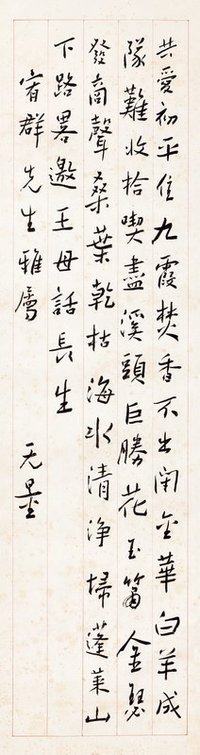 共愛初平住九霞焚香不出閉金華白羊成
隊難收拾喫盡溪頭巨勝花玉簫金瑟
發商聲桑葉乾枯海水清淨掃蓬萊山
下路畧邀王母話長生
宥群先生雅屬 无量